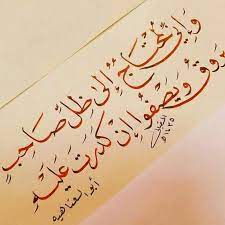 وَإني لمحتاجٌ إلى ظلِّ صَاحِبٍ
يروقُ ويَصفُوا إنْ كدرتُ عَليْهِ
أبو العتاهية